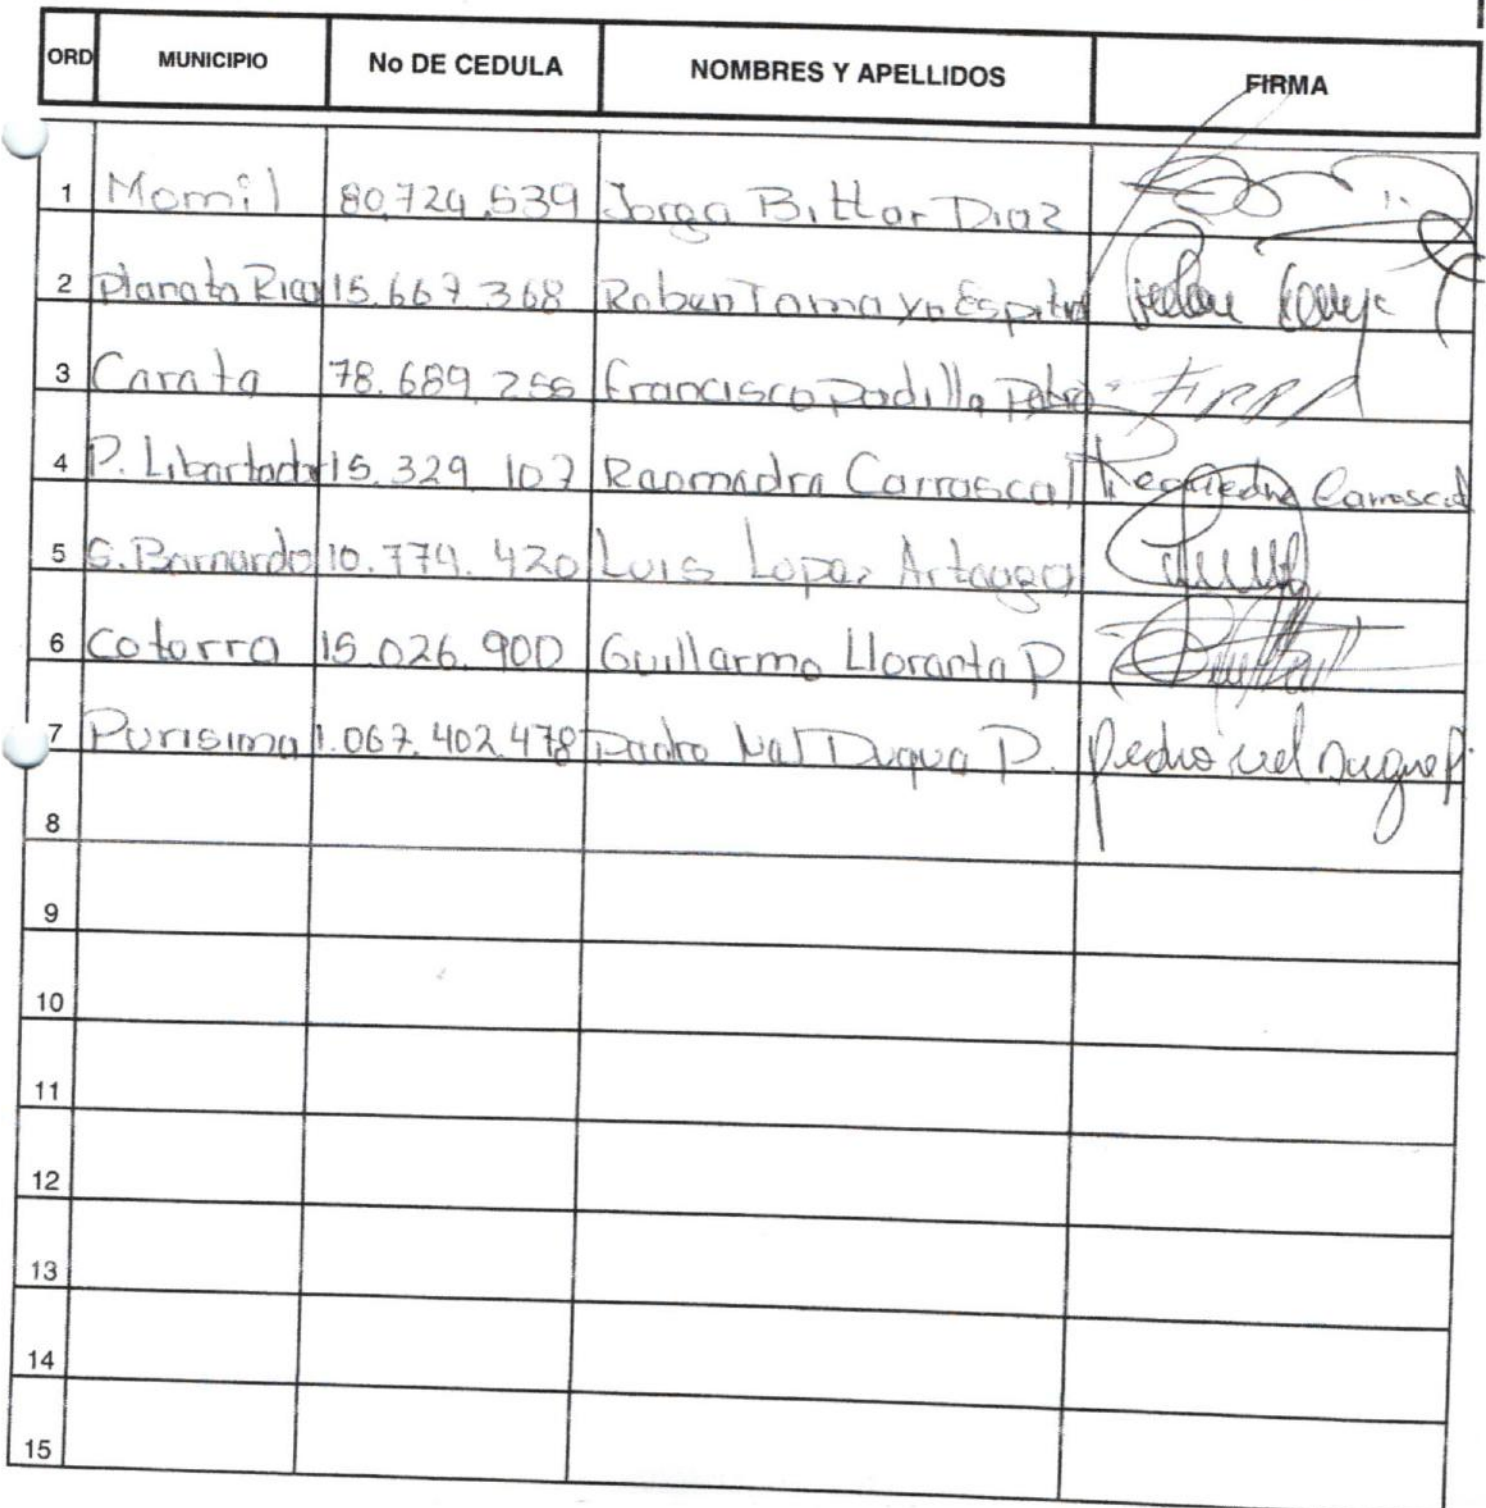 ORD MUNICIPIO No DE CEDULA NOMBRES Y APELLIDOS FIRMA
1 Momil 80,724,539 Jorge Bittar Diaz
2 Planeta Rica 15.667.368 Ruben Tamayo Espitia
3 Cereté 78.689.255 Francisco Padilla Petro
4 P. Libertador 15.329.107 Reomedra Carrascal Carrascal
5 S. Bernardo 10.774.420 Luis Lopez Arteaga
6 Cotorra 15.026.900 Guillermo Llorente P
7 Purisima 1.067.402.478 Pedro Nel Duque P. Pedro nel Duque P.
8
9
10
11
12
13
14
15